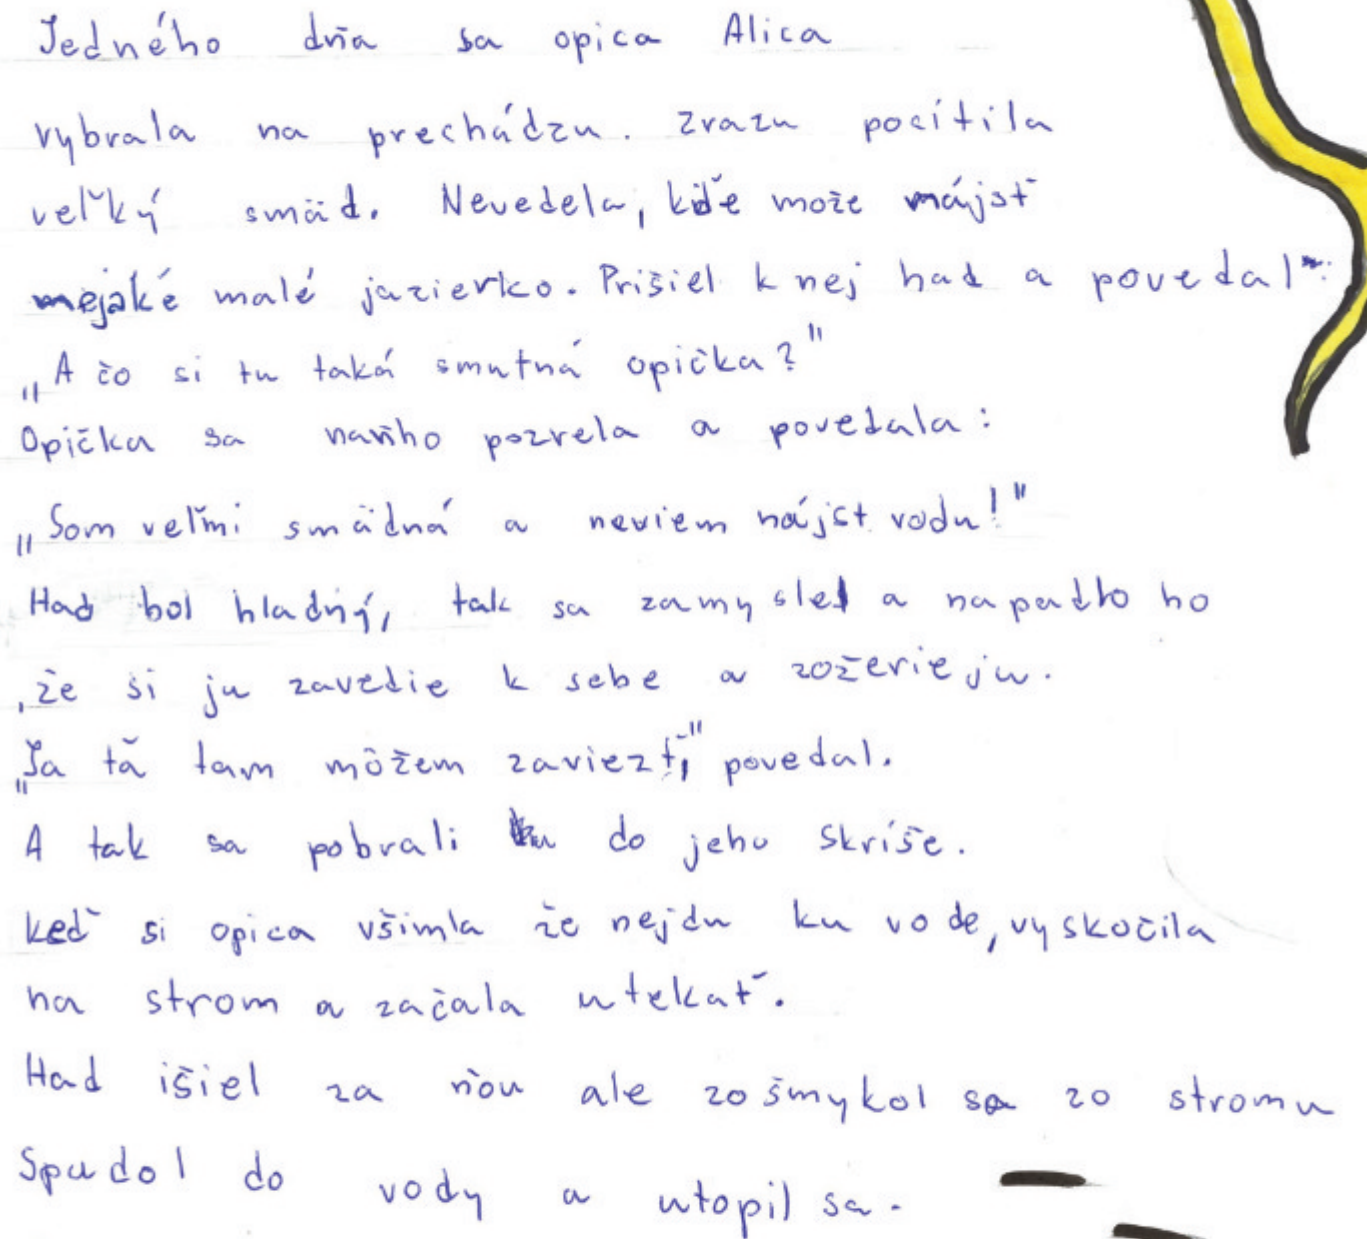 Jedného dňa sa opica Alica
vybrala na prechádzu. Zrazu pocítila
veľký smäd. Nevedela, kďe može nájsť
nejaké malé jazierko. Prišiel k nej had a povedal:
„A čo si tu taká smutná opička?"
Opička sa naňho pozrela a povedala:
„Som veľmi smädná a neviem nájst vodu!"
Had bol hladný, tak sa zamyslel a napadlo ho
,že si ju zavedie k sebe a zožerie ju.
„Ja ťa tam môžem zaviezť," povedal.
A tak sa pobrali do jeho skríše.
keď si opica všimla že nejdu ku vode, vyskočila
na strom a začala utekať.
Had išiel za ňou ale zošmykol sa zo stromu
Spadol do vody a utopil sa.